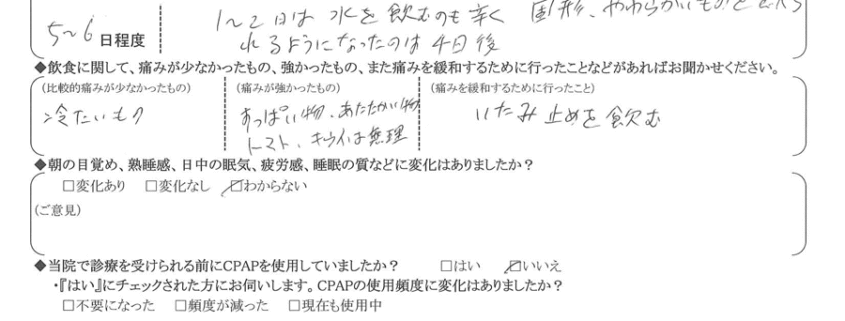 1～2日は 水を飲むのも辛く 固形、やわらかいものを食べら
5～6 日程度
れるようになったのは 4日後
◆飲食に関して、痛みが少なかったもの、強かったもの、また痛みを緩和するために行ったことなどがあればお聞かせください。
(比較的痛みが少なかったもの) (痛みが強かったもの) (痛みを緩和するために行ったこと)
冷たいもの すっぱい物、あたたかい物 いたみ止めを飲む
トマト、キウイは無理
◆朝の目覚め、熟睡感、日中の眠気、疲労感、睡眠の質などに変化はありましたか?
□変化あり □変化なし ☑わからない
(ご意見)
◆当院で診療を受けられる前にCPAPを使用していましたか? □はい ☑いいえ
・『はい』にチェックされた方にお伺いします。CPAPの使用頻度に変化はありましたか?
□不要になった □頻度が減った □現在も使用中